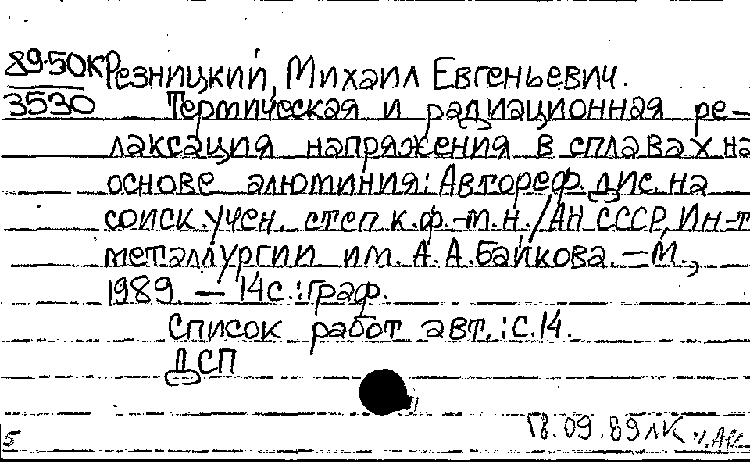 89-50К Резницкий, Михаил Евгеньевич.
3530 Термическая и радиационная ре-
лаксация напряжения в сплавах на
основе алюминия: Автореф. дис. на
соиск. учен. степ к.ф.-т.н. / АН СССР, Ин-т
металлургии им. А.А.Байкова. — М.,
1989. — 14с.: граф.
Список работ авт.: с.14.
ДСП
18.09.89 лк
5